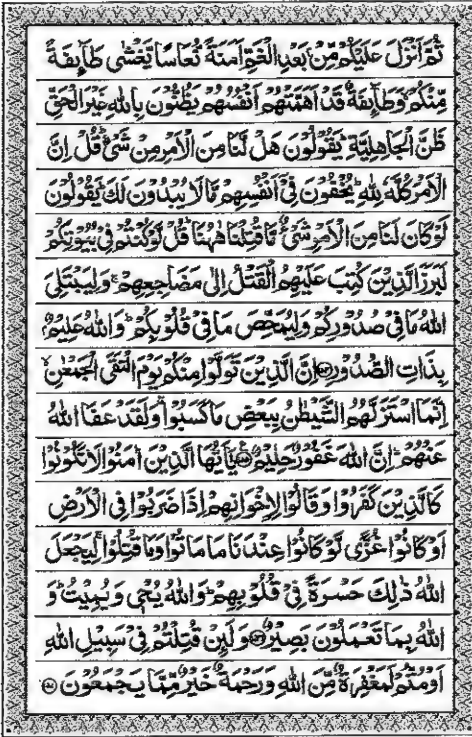 ثُمَّ اَنْزَلَ عَلَيْكُمْ مِّنْۢ بَعْدِ الْغَمِّ اَمَنَةً نُّعَاسًا يَّغْشٰى طَآىِٕفَةً
مِّنْكُمْ ۙ وَطَآىِٕفَةٌ قَدْ اَهَمَّتْهُمْ اَنْفُسُهُمْ يَظُنُّوْنَ بِاللّٰهِ غَيْرَ الْحَقِّ
ظَنَّ الْجَاهِلِيَّةِ ؕ يَقُوْلُوْنَ هَلْ لَّنَا مِنَ الْاَمْرِ مِنْ شَىْءٍ ؕ قُلْ اِنَّ
الْاَمْرَ كُلَّهٗ لِلّٰهِ ؕ يُخْفُوْنَ فِىْۤ اَنْفُسِهِمْ مَّا لَا يُبْدُوْنَ لَكَ ؕ يَقُوْلُوْنَ
لَوْ كَانَ لَنَا مِنَ الْاَمْرِ شَىْءٌ مَّا قُتِلْنَا هٰهُنَا ؕ قُلْ لَّوْ كُنْتُمْ فِىْ بُيُوْتِكُمْ
لَبَرَزَ الَّذِيْنَ كُتِبَ عَلَيْهِمُ الْقَتْلُ اِلٰى مَضَاجِعِهِمْ ۚ وَلِيَبْتَلِىَ
اللّٰهُ مَا فِىْ صُدُوْرِكُمْ وَلِيُمَحِّصَ مَا فِىْ قُلُوْبِكُمْ ؕ وَاللّٰهُ عَلِيْمٌۢ
بِذَاتِ الصُّدُوْرِ ﴿۱۵۴﴾ اِنَّ الَّذِيْنَ تَوَلَّوْا مِنْكُمْ يَوْمَ الْتَقَى الْجَمْعٰنِ ۙ
اِنَّمَا اسْتَزَلَّهُمُ الشَّيْطٰنُ بِبَعْضِ مَا كَسَبُوْا ۚ وَلَقَدْ عَفَا اللّٰهُ
عَنْهُمْ ؕ اِنَّ اللّٰهَ غَفُوْرٌ حَلِيْمٌ ﴿۱۵۵﴾ يٰۤاَيُّهَا الَّذِيْنَ اٰمَنُوْا لَا تَكُوْنُوْا
كَالَّذِيْنَ كَفَرُوْا وَقَالُوْا لِاِخْوَانِهِمْ اِذَا ضَرَبُوْا فِى الْاَرْضِ
اَوْ كَانُوْا غُزًّى لَّوْ كَانُوْا عِنْدَنَا مَا مَاتُوْا وَمَا قُتِلُوْا ۚ لِيَجْعَلَ
اللّٰهُ ذٰلِكَ حَسْرَةً فِىْ قُلُوْبِهِمْ ؕ وَاللّٰهُ يُحْىٖ وَيُمِيْتُ ؕ وَ
اللّٰهُ بِمَا تَعْمَلُوْنَ بَصِيْرٌ ﴿۱۵۶﴾ وَلَىِٕنْ قُتِلْتُمْ فِىْ سَبِيْلِ اللّٰهِ
اَوْ مُتُّمْ لَمَغْفِرَةٌ مِّنَ اللّٰهِ وَرَحْمَةٌ خَيْرٌ مِّمَّا يَجْمَعُوْنَ ﴿۱۵۷﴾